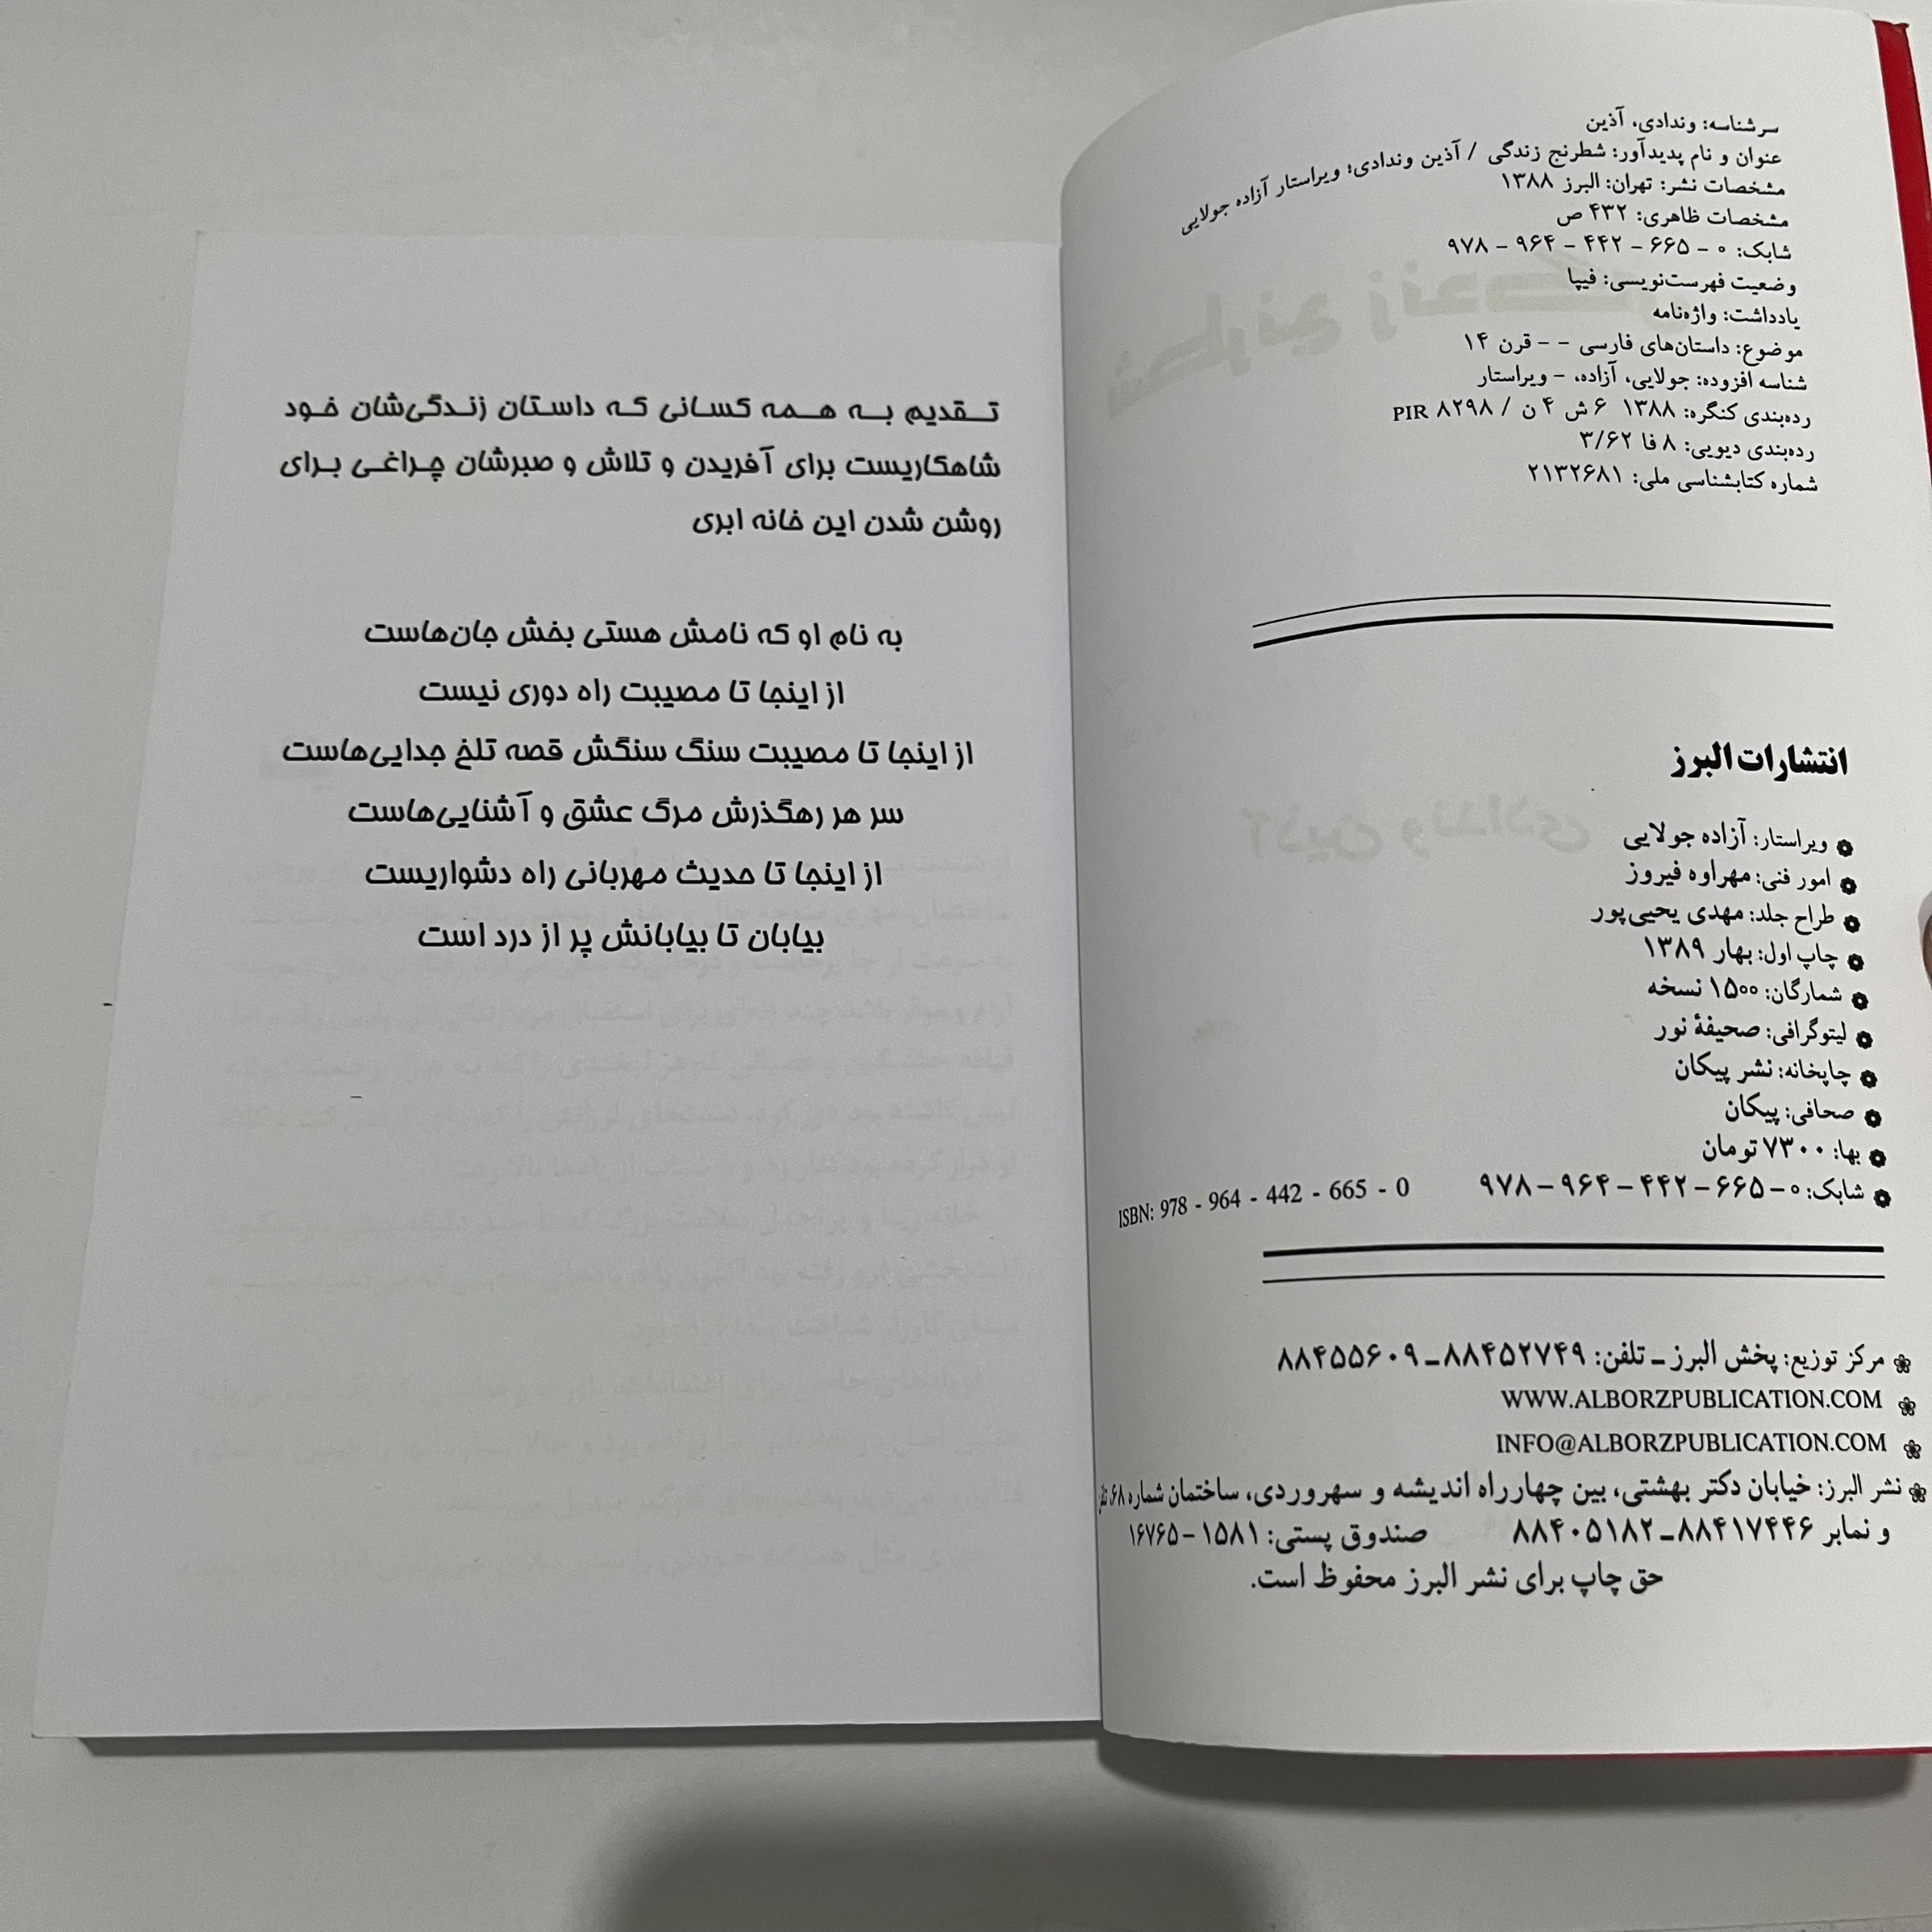 سرشناسه: وندادی، آذین
عنوان و نام پدیدآور: شطرنج زندگی / آذین وندادی؛ ویراستار آزاده جولایی
مشخصات نشر: تهران: البرز ۱۳۸۸
مشخصات ظاهری: ۴۳۲ ص
شابک: ۰ - ۶۶۵ - ۴۴۲ - ۹۶۴ - ۹۷۸
وضعیت فهرست‌نویسی: فیپا
یادداشت: واژه‌نامه
موضوع: داستان‌های فارسی - - قرن ۱۴
شناسه افزوده: جولایی، آزاده، - ویراستار
رده‌بندی کنگره: ۱۳۸۸ ۶ ش ۴ ن / ۸۲۹۸ PIR
رده‌بندی دیویی: ۸ فا ۳/۶۲
شماره کتابشناسی ملی: ۲۱۳۲۶۸۱
انتشارات البرز
ویراستار: آزاده جولایی
امور فنی: مهراوه فیروز
طراح جلد: مهدی یحیی‌پور
چاپ اول: بهار ۱۳۸۹
شمارگان: ۱۵۰۰ نسخه
لیتوگرافی: صحیفهٔ نور
چاپخانه: نشر پیکان
صحافی: پیکان
بها: ۷۳۰۰ تومان
شابک: ۰-۶۶۵-۴۴۲-۹۶۴-۹۷۸ ISBN: 978 - 964 - 442 - 665 - 0
مرکز توزیع: پخش البرز ـ تلفن: ۸۸۴۵۲۷۴۹ـ۸۸۴۵۵۶۰۹
WWW.ALBORZPUBLICATION.COM
INFO@ALBORZPUBLICATION.COM
نشر البرز: خیابان دکتر بهشتی، بین چهارراه اندیشه و سهروردی، ساختمان شماره ۶۸،
و نمابر ۸۸۴۱۷۴۴۶ـ۸۸۴۰۵۱۸۲ صندوق پستی: ۱۵۸۱-۱۶۷۶۵
حق چاپ برای نشر البرز محفوظ است.
تقدیم به همه کسانی که داستان زندگی‌شان خود
شاهکاریست برای آفریدن و تلاش و صبرشان چراغی برای
روشن شدن این خانه ابری
به نام او که نامش هستی بخش جان‌هاست
از اینجا تا مصیبت راه دوری نیست
از اینجا تا مصیبت سنگ سنگش قصه تلخ جدایی‌هاست
سر هر رهگذرش مرگ عشق و آشنایی‌هاست
از اینجا تا حدیث مهربانی راه دشواریست
بیابان تا بیابانش پر از درد است